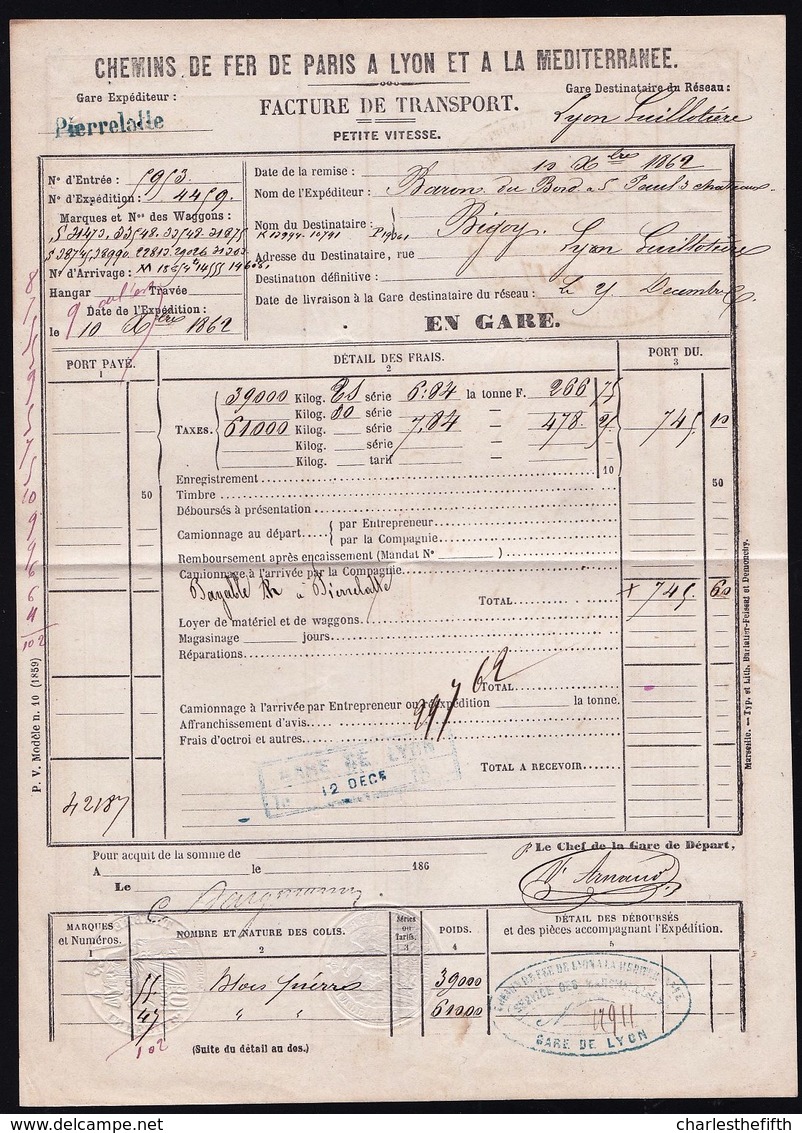 CHEMINS DE FER DE PARIS A LYON ET A LA MEDITERRANEE.
Gare Expéditeur :
Pierrelatte
FACTURE DE TRANSPORT.
PETITE VITESSE.
Gare Destinataire du Réseau :
Lyon Guillotière
N° d'Entrée : 5953.
N° d'Expédition : 4459.
Marques et Nos des Wagons :
N° d'Arrivage :
Hangar Travée
Date de l'Expédition :
le 10 Xbre 1862
Date de la remise : 10 Xbre 1862
Nom de l'Expéditeur : Baron du Bord à St Paul 3 chateaux
Nom du Destinataire : Bigoy.
K 12944 - 10741
Adresse du Destinataire, rue Lyon Guillotière
Destination définitive :
Date de livraison à la Gare destinataire du réseau : Le 25 Decembre
EN GARE.
PORT PAYÉ.
1
DÉTAIL DES FRAIS.
2
PORT DU.
3
TAXES.
39000 Kilog. série 6.84 la tonne F. 266 75
61000 Kilog. série 7,84 — 478. 25 745 10
Kilog. série —
Kilog. tarif — 10
Enregistrement
50 Timbre 50
Déboursés à présentation
Camionage au départ
par Entrepreneur
par la Compagnie
Remboursement après encaissement (Mandat N° )
Camionnage à l'arrivée par la Compagnie
Payable à Pierrelatte
TOTAL 745. 60
Loyer de matériel et de wagons
Magasinage jours
Réparations
TOTAL
Camionnage à l'arrivée par Entrepreneur ou réexpédition la tonne.
Affranchissement d'avis
Frais d'octroi et autres
GARE DE LYON
12 DECE
18 18
TOTAL A RECEVOIR
42187
8
7
5
5
9
5
7
5
10
9
9
6
6
4
102
P. V. Modèle n. 10 (1859)
Marseille. — Typ. et Lith. Barlatier-Feissat et Demonchy.
Pour acquit de la somme de
A le 186
Le
Le Chef de la Gare de Départ,
V. Arnaud
MARQUES
et Numéros.
1
NOMBRE ET NATURE DES COLIS.
2
Séries
ou
Tarifs.
3
POIDS.
4
DÉTAIL DES DÉBOURSÉS
et des pièces accompagnant l'Expédition.
5
55 Blocs pierres 39000
47 " " 61000
102
CHEMIN DE FER DE LYON A LA MEDITERRANÉE
GARE DE LYON
(Suite du détail au dos.)
charlesthefifth